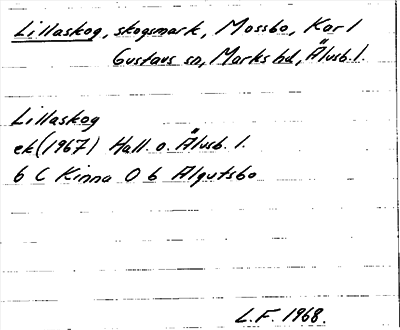 Lillaskog, skogsmark, Mossbo, Karl
Gustavs sn, Marks hd, Älvsb. l.
Lillaskog
ek (1967) Hall. o. Älvsb. l.
6 C Kinna O b Älgutsbo
L.F. 1968.